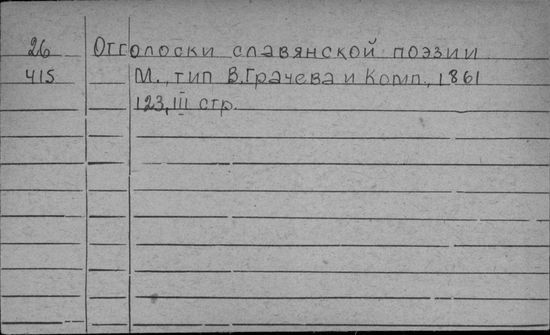 26 Отголоски славянской поэзии
415 М., тип В. Грачева и Комп., 1861
123, III стр.